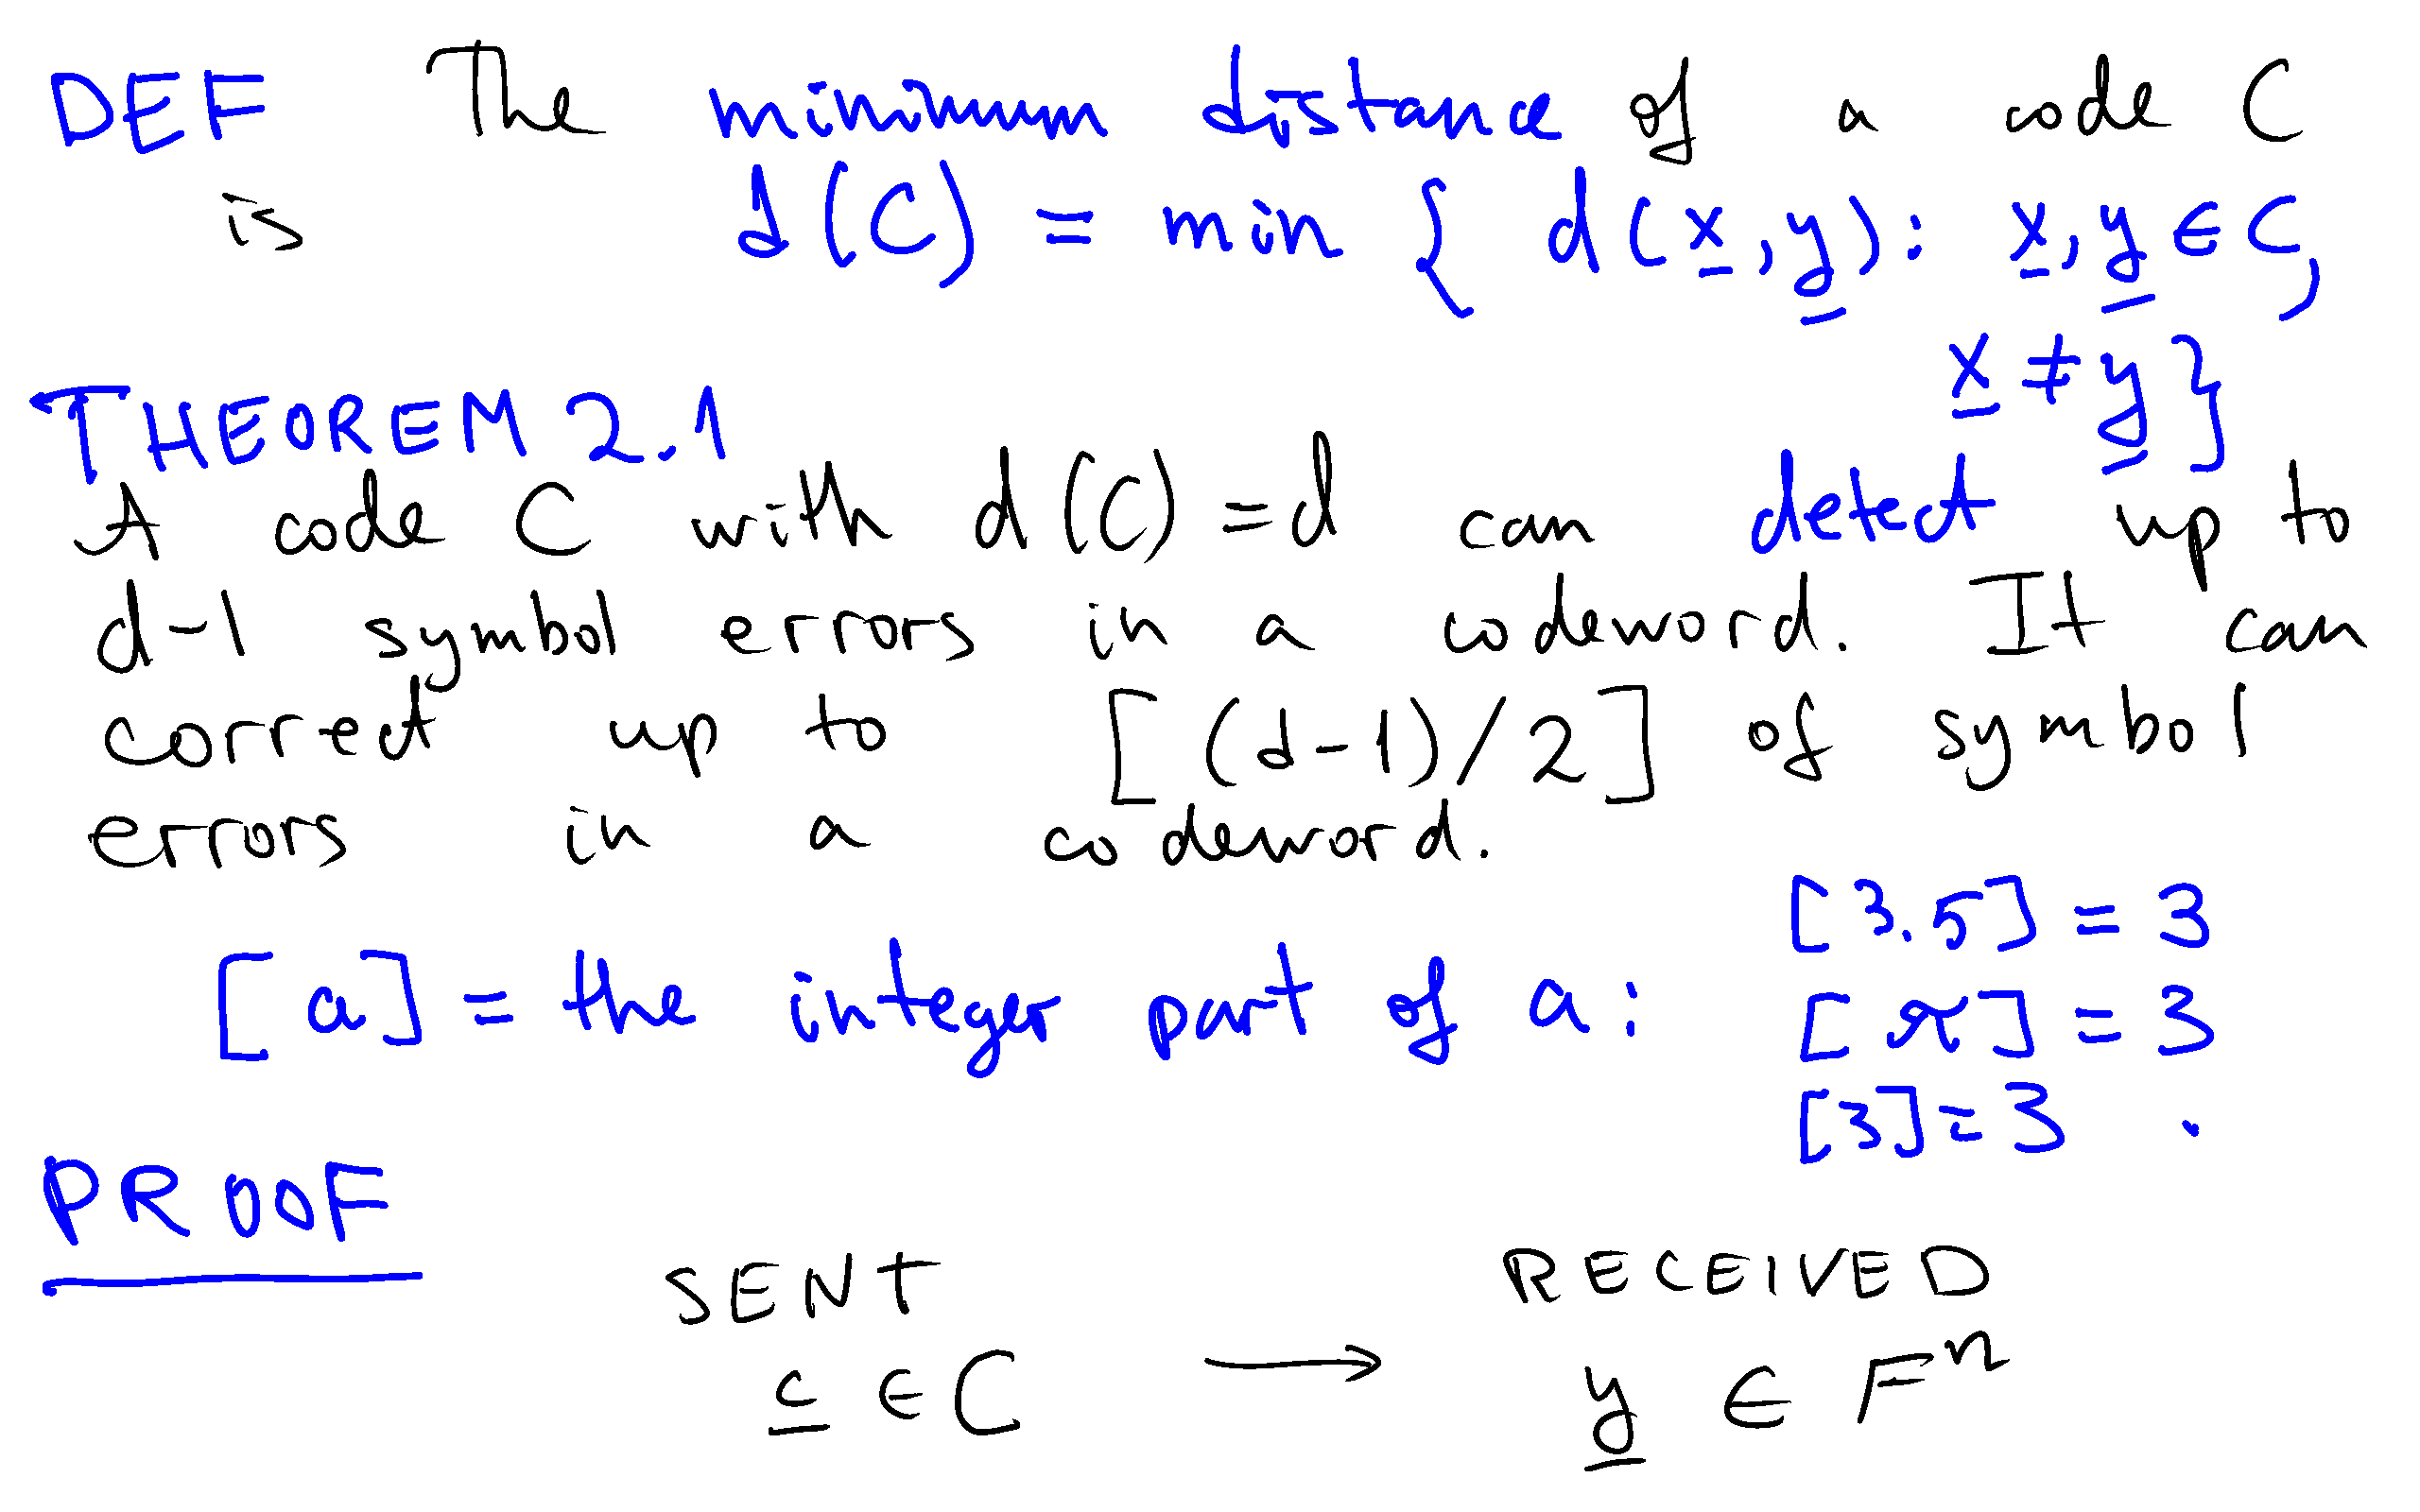 DEF The minimum distance of a code C
is d(C) = min { d(x, y): x, y ∈ C,
x ≠ y }
THEOREM 2.1
A code C with d(C) = d can detect up to
d-1 symbol errors in a codeword. It can
correct up to [(d-1)/2] of symbol
errors in a codeword.
[3.5] = 3
[a] = the integer part of a: [π] = 3
[3] = 3 .
PROOF
SENT RECEIVED
c ∈ C → y ∈ Fⁿ